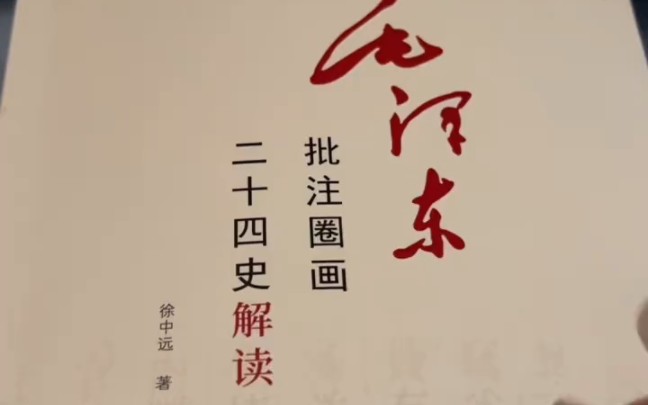 毛泽东
批注圈画
二十四史解读
徐中远 著